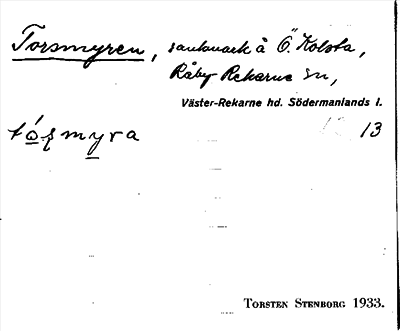 Torsmyren, sankmark å Ö. Kolsta,
Råby-Rekarne sn,
Väster-Rekarne hd. Södermanlands l.
13
TORSTEN STENBORG 1933.